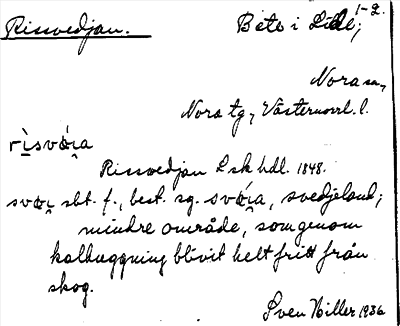 Rissvedjan. Bete i Lide, 1-2.
Nora sn,
Nora tg, Västernorrl. l.
rìsvó̱i̯a
Rissvedjan L sk hdl. 1848.
svoi̯ sbt. f., best. sg. svói̯a, svedjeland;
mindre område, som genom
kalhuggning blivit helt fritt från
skog.
Sven Hiller 1936